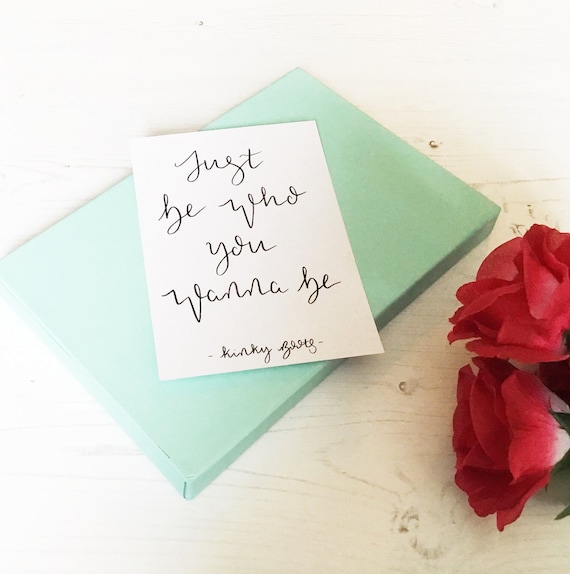 Just
be who
you
wanna be
- kinky Boots -